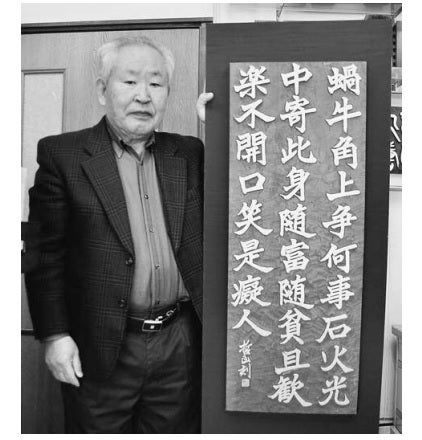 蝸牛角上争何事石火光
中寄此身随富随貧且歓
楽不開口笑是癡人